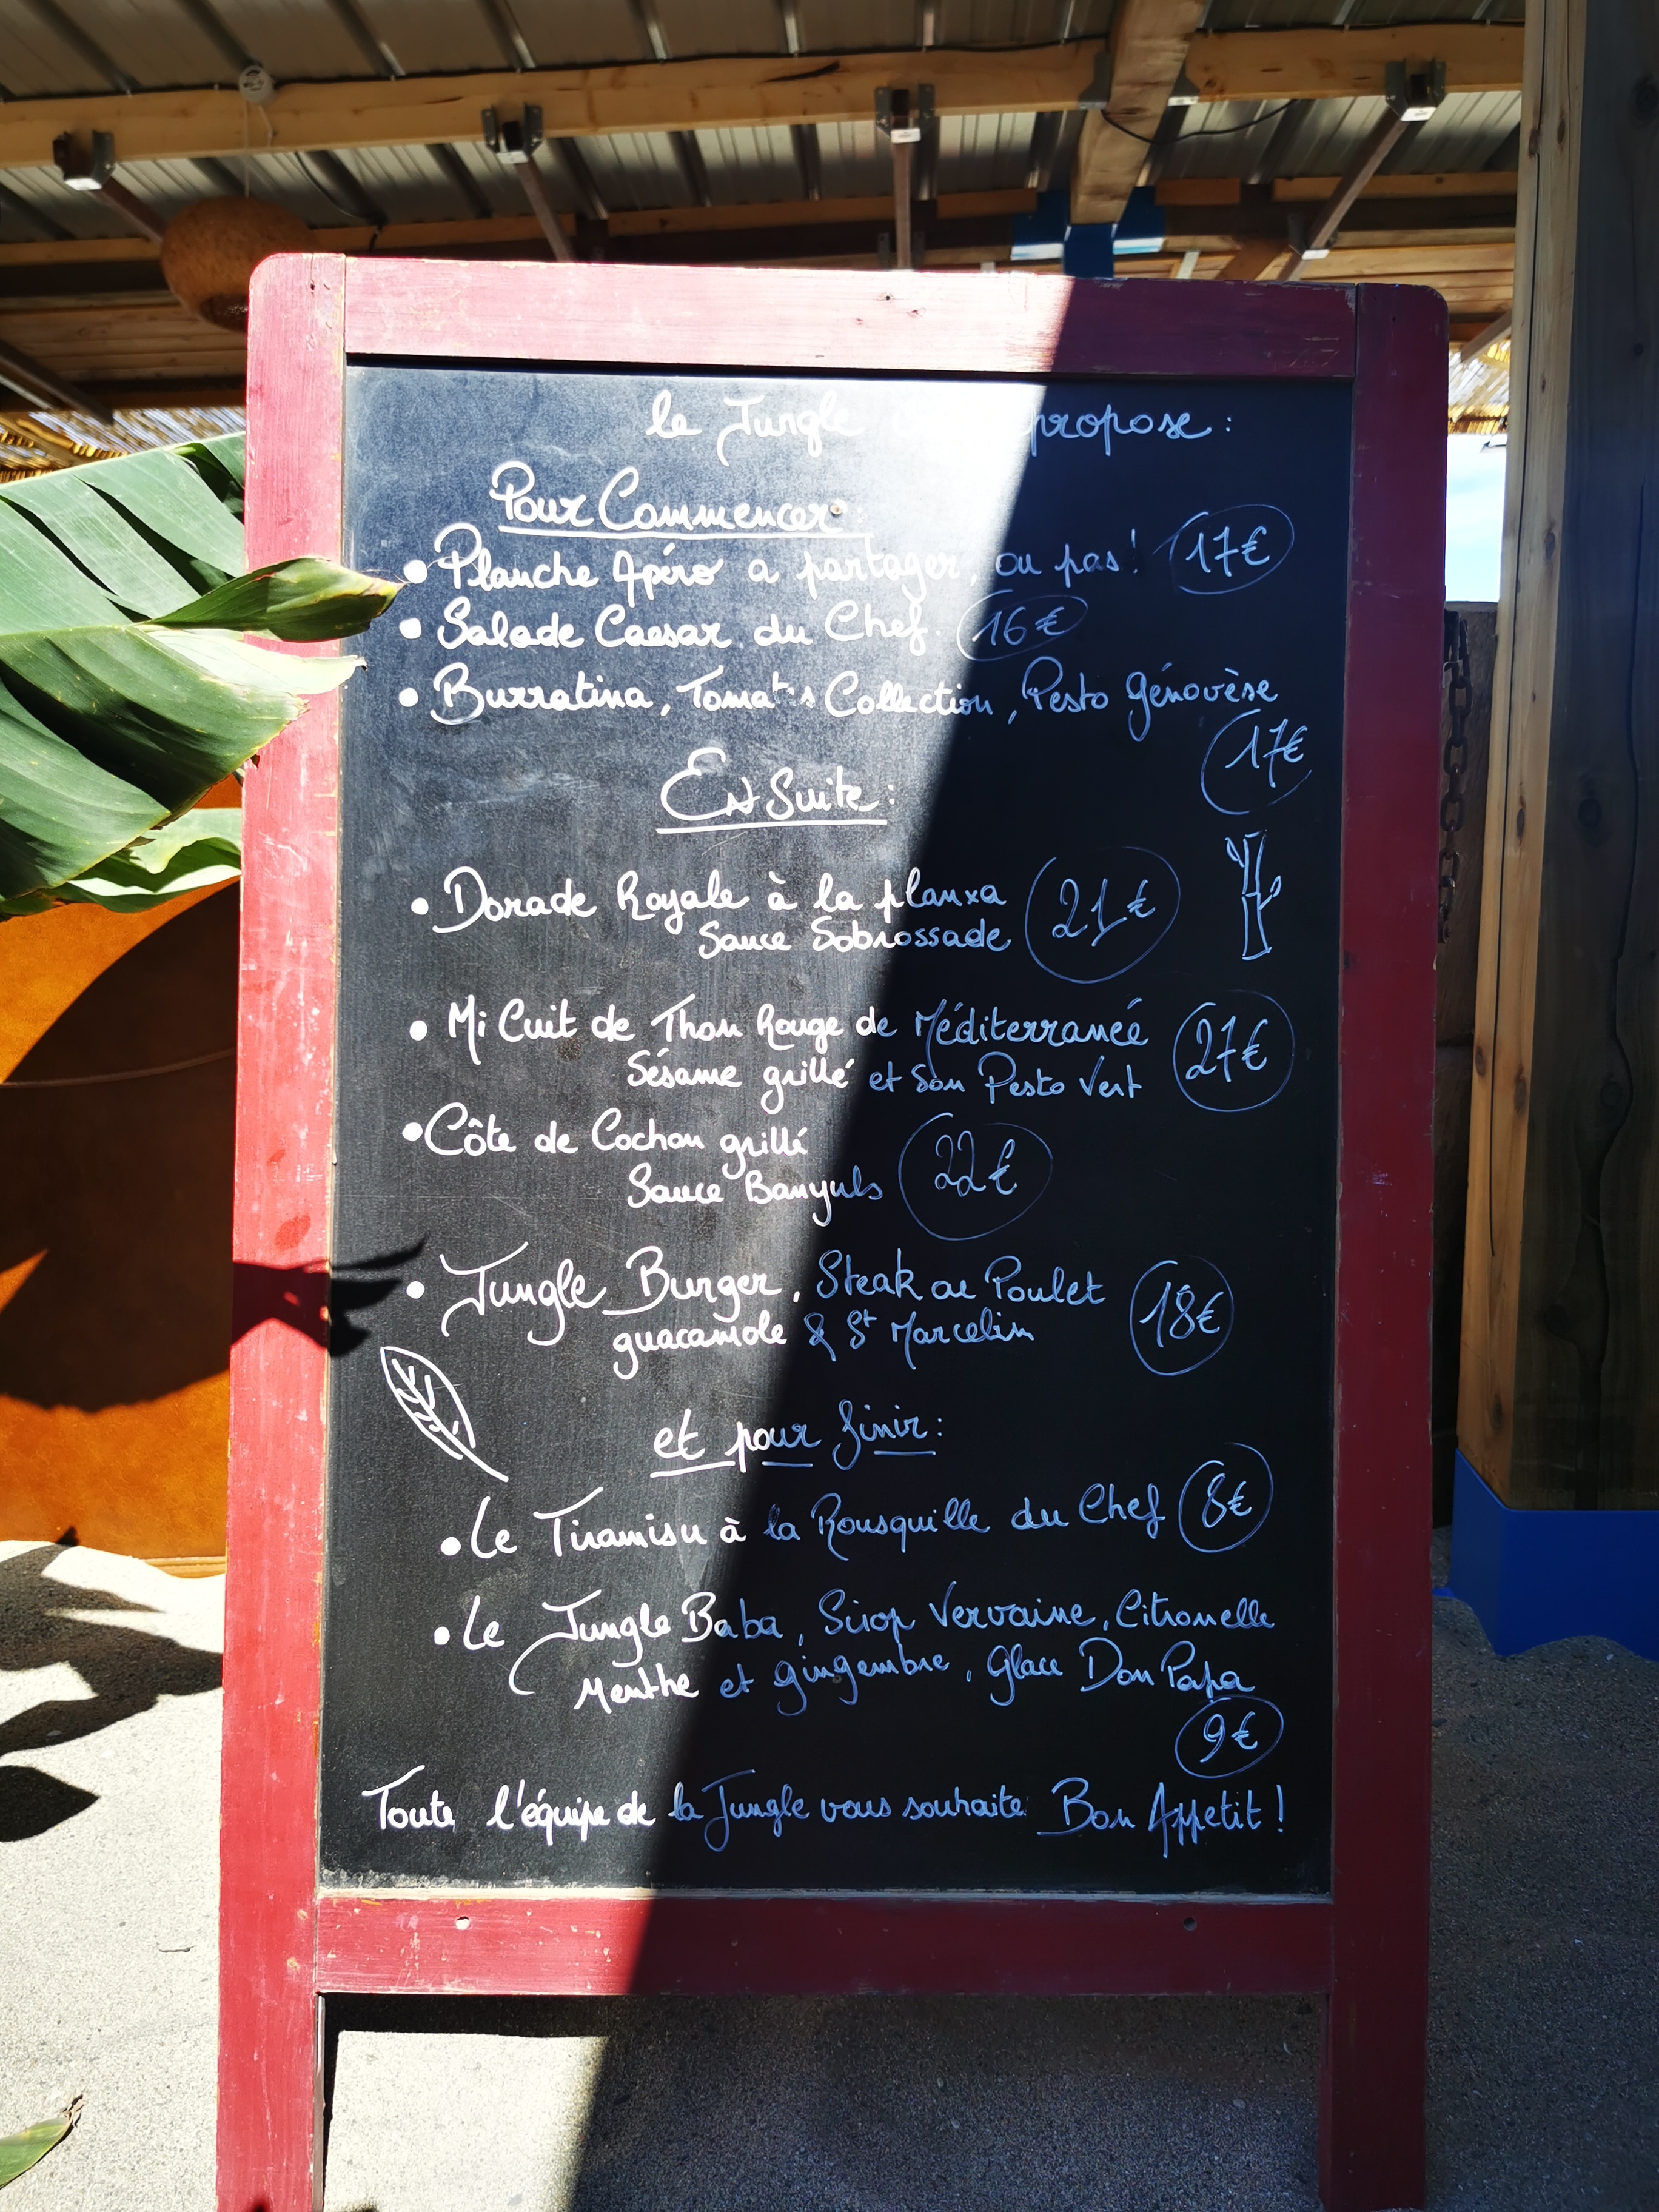 le Jungle propose :
Pour Commencer :
• Planche Apéro a partager, ou pas ! 17€
• Salade Caesar du Chef. 16€
• Burratina, Tomates Collection, Pesto Génovèse
17€
En Suite :
• Dorade Royale à la planxa
Sauce Sobrossade 21€
• Mi Cuit de Thon Rouge de Méditerranéé
Sésame grillé et son Pesto Vert 27€
• Côte de Cochon grillé
Sauce Banyuls 22€
• Jungle Burger, Steak ou Poulet
guacamole & St Marcelin 18€
et pour finir :
• Le Tiramisu à la Rousquille du Chef 8€
• Le Jungle Baba, Sirop Vervaine, Citronelle
Menthe et gingembre, glace Don Papa
9€
Toute l'équipe de la Jungle vous souhaite Bon Appetit !